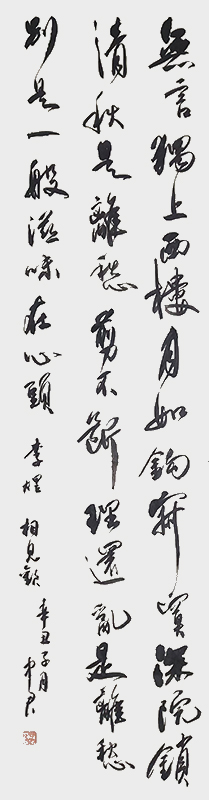 無言獨上西樓月如鉤寂寞深院鎖
清秋是離愁剪不斷理還亂是離愁
別是一般滋味在心頭 李煜 相見歡 辛丑子月